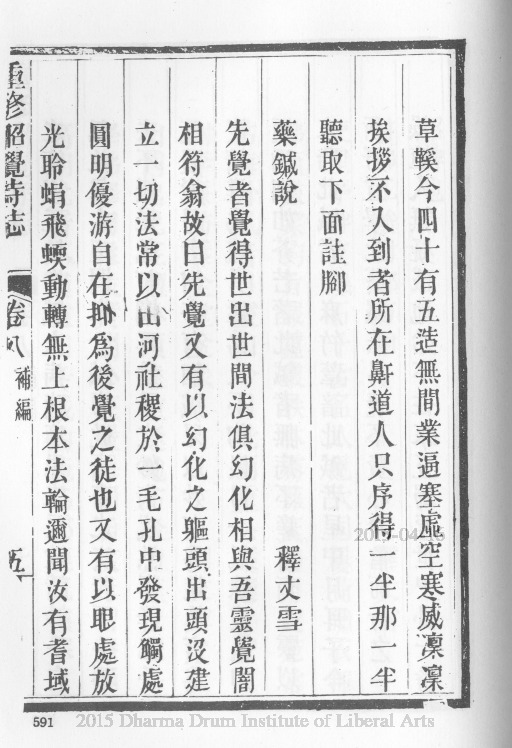 草鞵今四十有五造無間業逼塞虛空寒威凜凜
挨拶不入到者所在鼾道人只序得一半那一半
聽取下面註脚
藥鍼說　釋丈雪
先覺者覺得世出世間法俱幻化相與吾靈覺闇
相符翕故曰先覺又有以幻化之軀頭出頭沒建
立一切法常以山河社稷於一毛孔中發現觸處
圓明優游自在抑爲後覺之徒也又有以耶處放
光聆蜎飛蝡動轉無上根本法輪邇聞汝有耆域
重修昭覺寺志
卷八 補編 五
591
2015 Dharma Drum Institute of Liberal Arts